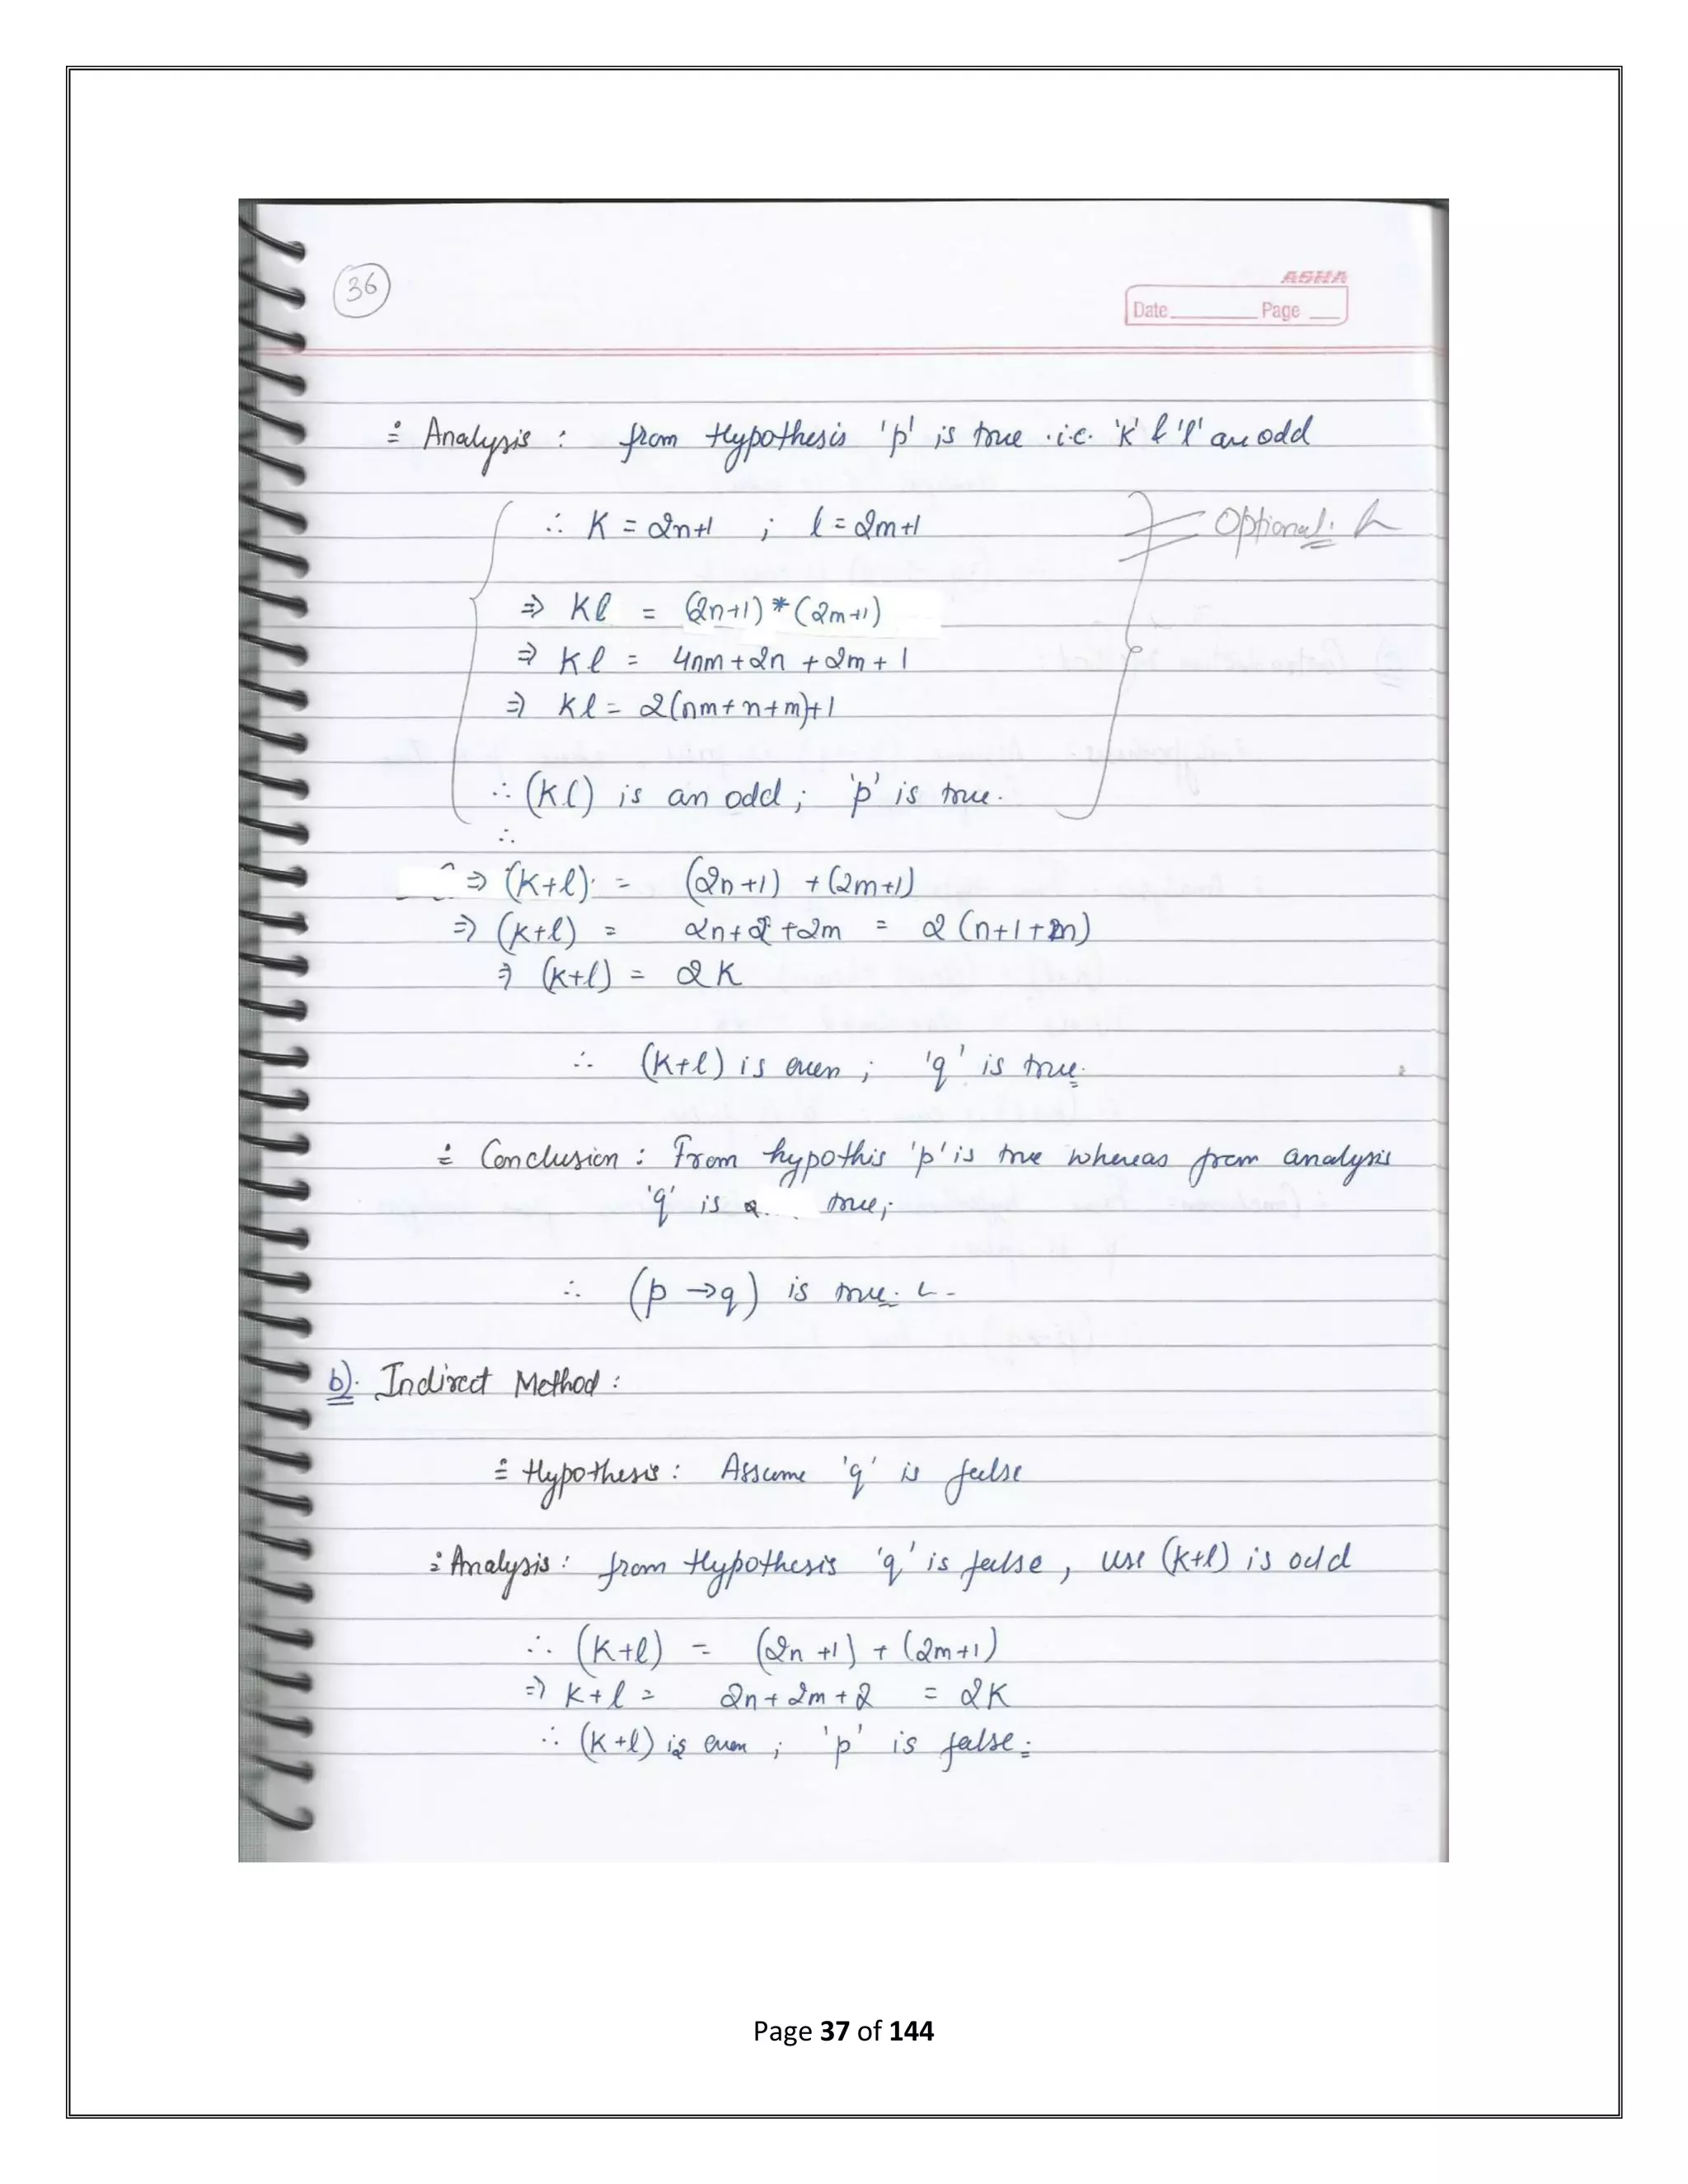 36
ASHA
Date Page
÷ Analysis : from Hypothesis 'p' is true .i.e. 'K' & 'l' are odd
∴ K = 2n+1 ; l = 2m+1
Optional.
⇒ Kl = (2n+1)*(2m+1)
⇒ Kl = 4nm+2n +2m+ 1
⇒ Kl = 2(nm+n+m)+1
∴ (Kl) is an odd ; 'p' is true.
∴
⇒ (K+l) = (2n+1) +(2m+1)
⇒ (k+l) = 2n+2+2m = 2 (n+1+m)
⇒ (k+l) = 2K
∴ (K+l) is even ; 'q' is true.
÷ Conclusion : From hypothis 'p' is true whereas from analysis
'q' is true;
∴ (p →q) is true.
b). Indirect Method :
÷ Hypothesis : Assume 'q' is false
÷ Analysis : from Hypothesis 'q' is false, use (k+l) is odd
∴ (K+l) = (2n +1) + (2m+1)
⇒ K+l = 2n+2m+2 = 2K
∴ (K+l) is even ; 'p' is false.
Page 37 of 144